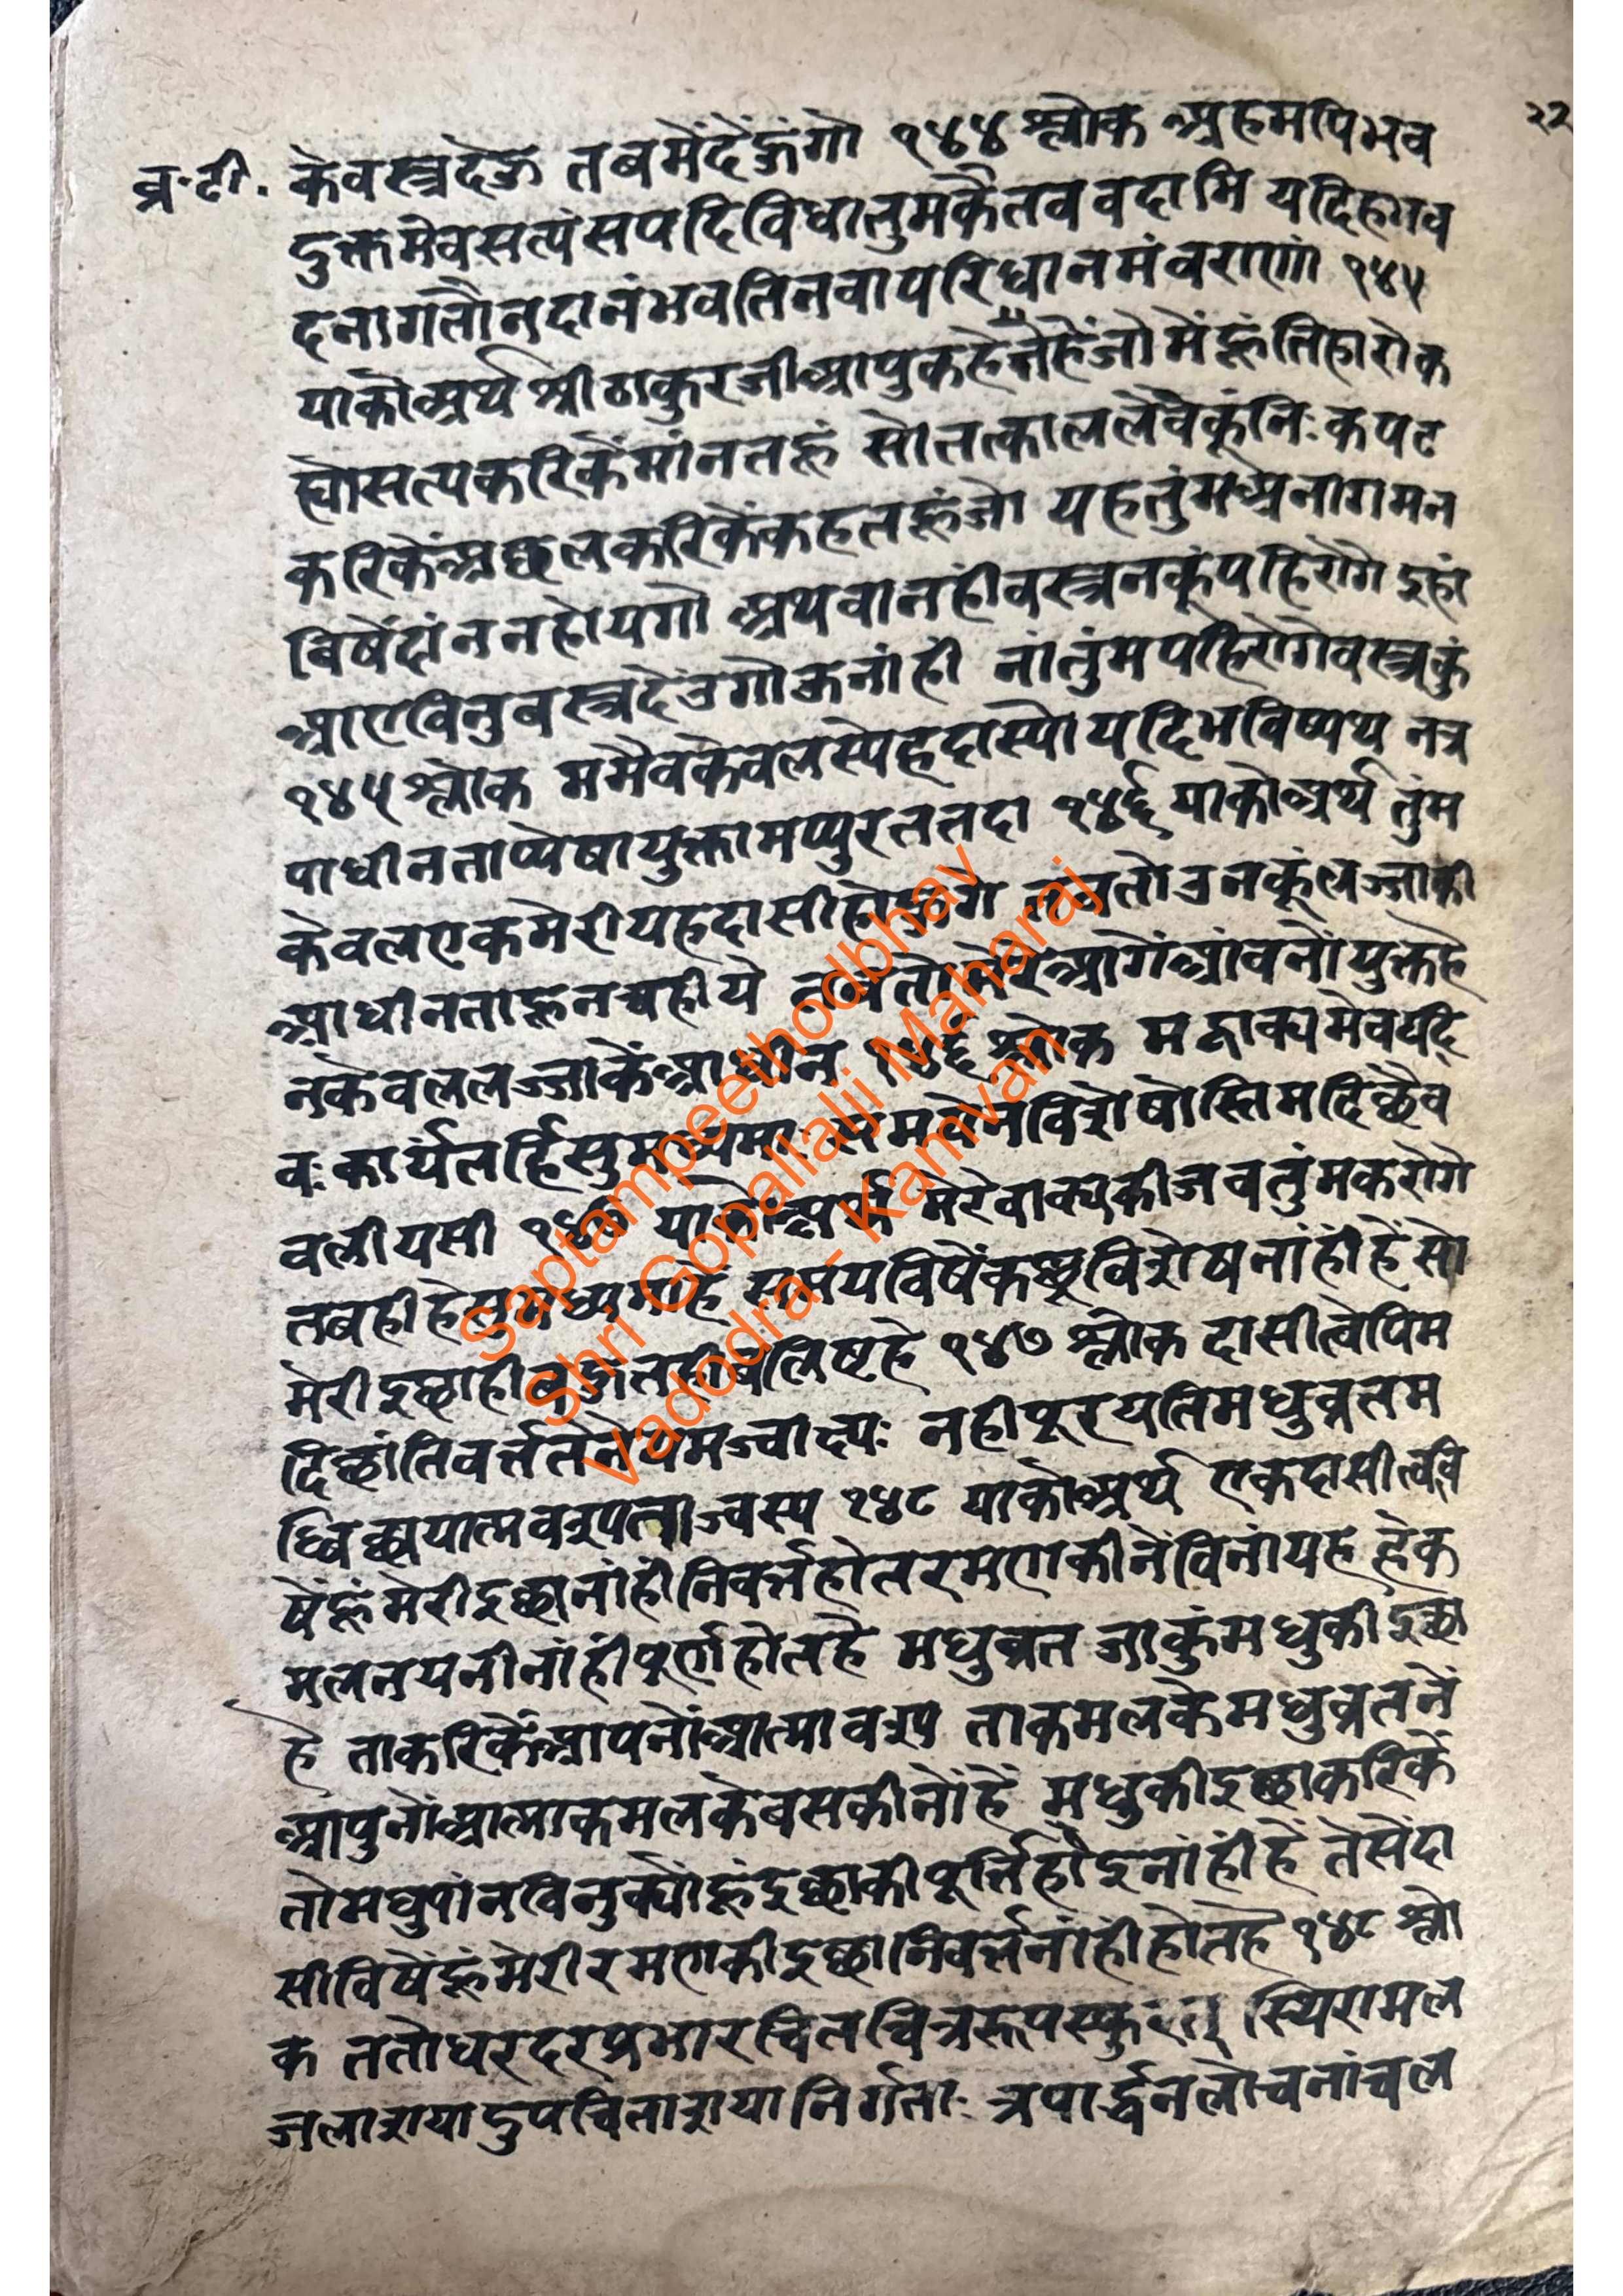 २२
व्र॰टी॰ केवस्त्रदेऊ तबमेंदेंऊंगो १४४ श्लोक अहमपिभव
दुक्तमेवसत्यंसपदिविधातुमकैतव वदामि यदिहभव
दनागतौनदानंभवतिनवापरिधानमंवराणां १४५
याकोअर्थ श्रीठाकुरजीआपुकहेतेहेंजोमेंहूंतिहारोक
ह्योसत्यकरिकेंमांनतहूं सोतत्काललेवेकूंनिःकपट
करिकेंअछलकरिकेंकहतहूंजो यहतुंमअनागमन
विषेंदांननहोयगो अथवानहींवस्त्रनकूंपहिरोगे इहां
आएविनुवस्त्रदेंउगोऊनांही नांतुंमपहिरोगेवस्त्रकुं
१४५ श्लोक ममैवकेवलस्येहदास्योयदिभविष्यथ नत्र
पाधीनताप्येषायुक्तामप्पुरततदा १४६ याकोअर्थ तुंम
केवलएकमेरीयहदासीहोऊगे तबतोउनकूंलज्जाकी
आधीनताहूनचहीये तबतोमेरेआगेंआंवनोंयुक्तहै
नकेवललज्जाकेंआधीन १४६ श्लोक मद्वाक्यमेवयदि
वःकार्यंतर्हिसुमध्यमाः समयेनविशेषोस्तिमदिछैव
वलीयसी १४७ याकोअर्थ मेरेवाक्यकीजवतुंमकरोगे
तबहीहेसुमध्यमाहें समयविषेंकछुविशेषनांहींहेंसो
मेरीइछाहीबहुतहीबलिष्टहे १४७ श्लोक दासीत्वेपिम
दिछांतिवर्त्ततेनेयमज्वाद्यः नहीपूरयतिमधुव्रतम
ध्विछ्यात्मवशपत्वाज्वस्य १४८ याकोअर्थ एकदासीत्ववि
षेंहूंमेरीइछानांहींनिवर्त्तहोतरमणकीनेंविनांयह हेक
मलनयनीनांहींपूर्णहोतहै मधुव्रत जाकुंमधुकीइछा
है ताकरिकेंआपनोंआत्मावश ताकमलकेमधुव्रतनें
आपुनोंआत्माकमलकेबसकीनोंहें मधुकीइछाकरिकें
तोमधुपांनविनुक्योंहूंइछाकीपूर्त्तिहोइनांहींहें तेसेंदा
सीविषेंहूंमेरीरमणकीइछानिवर्त्तनांहींहोतहै १४८ श्लो
क ततोधरदरप्रभारचितचित्ररूपस्फुरत् स्थिरामल
जलाशयादुपचिताशयानिर्गताः त्रपार्द्धनलोचनांचल
Saptampeethodbhav
Shri Gopallalji Maharaj
Vadodra - Kamvan